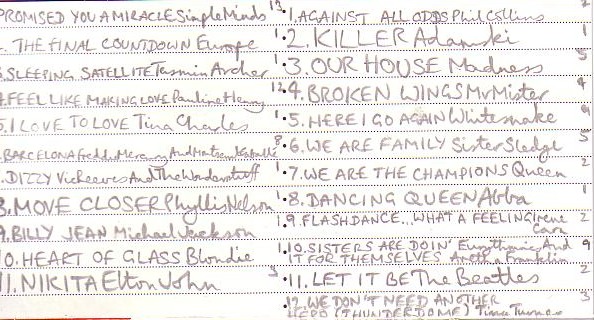 PROMISED YOU A MIRACLE Simple Minds 12
THE FINAL COUNTDOWN Europe 1
SLEEPING SATELLITE Tasmin Archer 1
4. FEEL LIKE MAKING LOVE Pauline Henry 12
5. I LOVE TO LOVE Tina Charles 1
BARCELONA Freddie Mercury And 8
7. DIZZY Vic Reeves And The Wonderstuff 1
8. MOVE CLOSER Phyllis Nelson 1
9. BILLY JEAN Michael Jackson 1
10. HEART OF GLASS Blondie 1
11. NIKITA Elton John 3
1. AGAINST ALL ODDS Phil Collins 2
2. KILLER Adamski 1
3. OUR HOUSE Madness 5
4. BROKEN WINGS Mr Mister 4
5. HERE I GO AGAIN Whitesnake 9
6. WE ARE FAMILY Sister Sledge 5
7. WE ARE THE CHAMPIONS Queen 2
8. DANCING QUEEN Abba 1
9. FLASHDANCE...WHAT A FEELING Irene 2
Cara
10. SISTERS ARE DOIN' Eurythmics And 9
IT FOR THEMSELVES Aretha Franklin
11. LET IT BE The Beatles 2
12. WE DON'T NEED ANOTHER 3
HERO (THUNDERDOME) Tina Turner